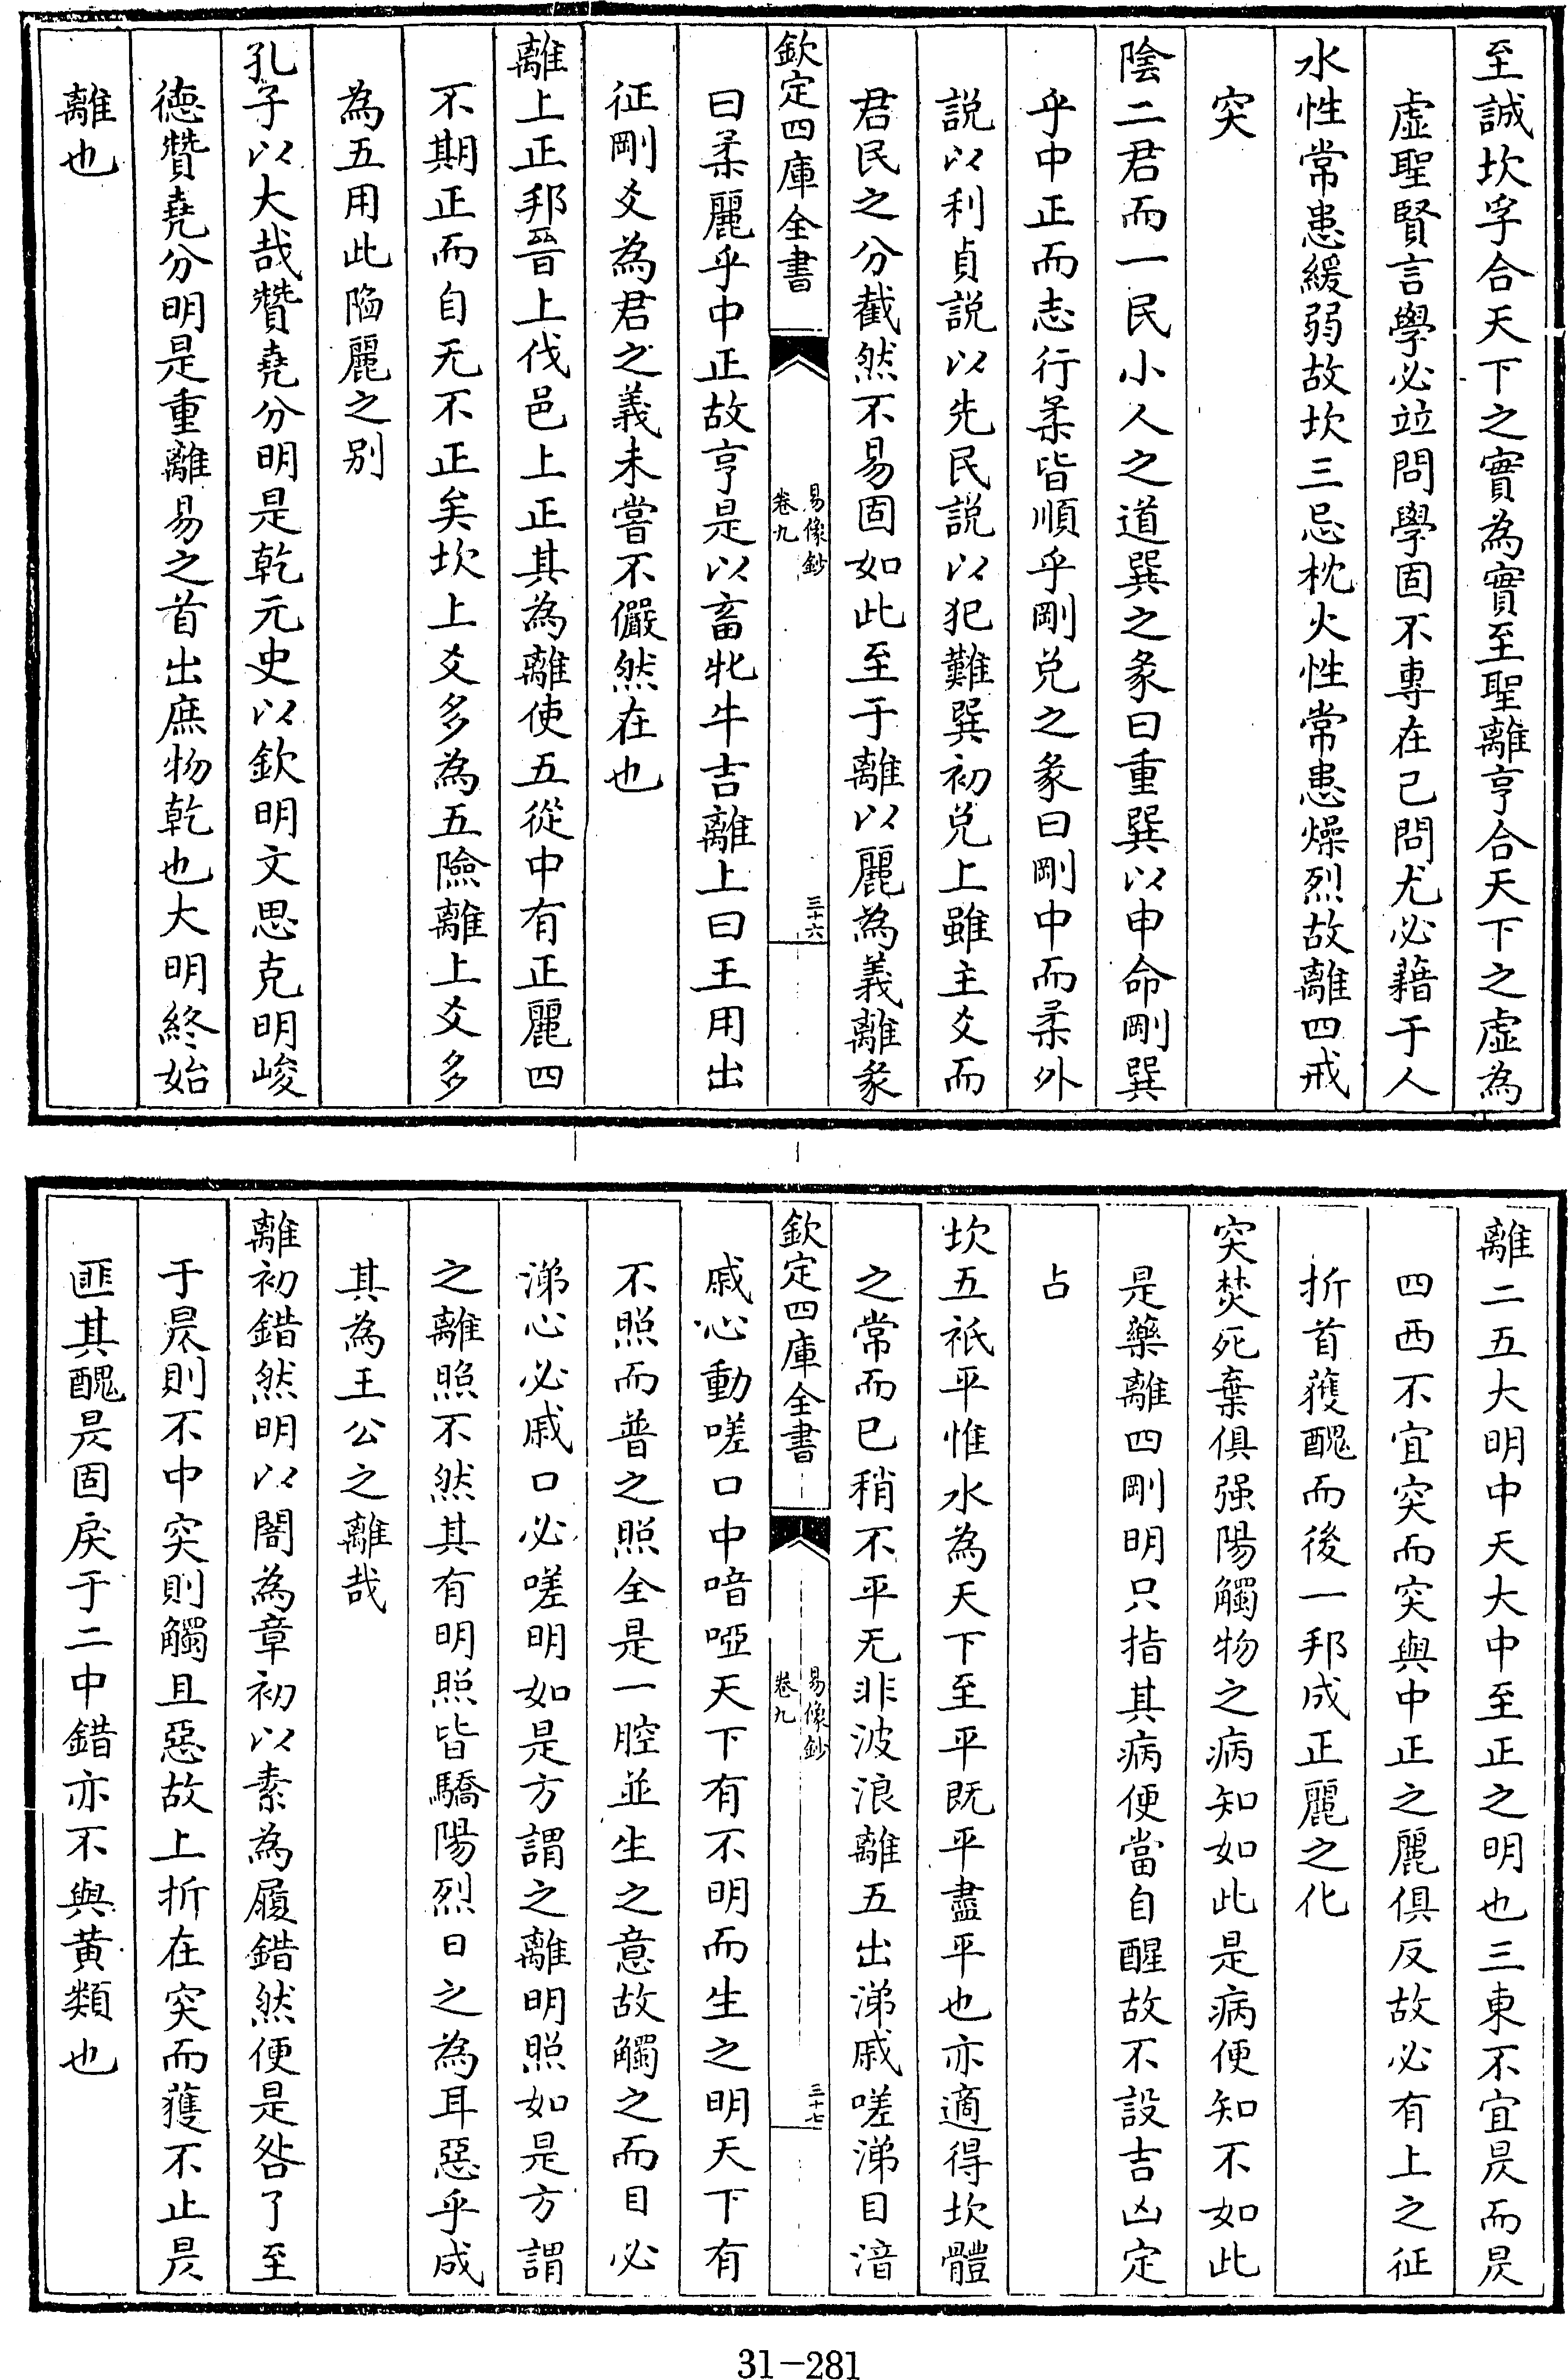 至誠坎孚合天下之實為實至聖離亨合天下之虛為
虛聖賢言學必竝問學固不專在己問尤必藉于人
水性常患緩弱故坎三忌枕火性常患燥烈故離四戒
突
陰二君而一民小人之道巽之彖曰重巽以申命剛巽
乎中正而志行柔皆順乎剛兌之彖曰剛中而柔外
説以利貞説以先民説以犯難巽初兌上雖主爻而
君民之分截然不易固如此至于離以麗為義離彖
欽定四庫全書
易像鈔
卷九
三十六
曰柔麗乎中正故亨是以畜牝牛吉離上曰王用出
征剛爻為君之義未嘗不儼然在也
離上正邦晉上伐邑上正其為離使五從中有正麗四
不期正而自无不正矣坎上爻多為五險離上爻多
為五用此陷麗之别
孔子以大哉贊堯分明是乾元史以欽明文思克明峻
德贊堯分明是重離易之首出庶物乾也大明終始
離也
離二五大明中天大中至正之明也三東不宜昃而昃
四西不宜突而突與中正之麗俱反故必有上之征
折首獲醜而後一邦成正麗之化
突焚死棄俱强陽觸物之病知如此是病便知不如此
是藥離四剛明只指其病便當自醒故不設吉凶定
占
坎五祇平惟水為天下至平既平盡平也亦適得坎體
之常而已稍不平无非波浪離五出涕戚嗟涕目涪
欽定四庫全書
易像鈔
卷九
三十七
戚心動嗟口中喑啞天下有不明而生之明天下有
不照而普之照全是一腔並生之意故觸之而目必
涕心必戚口必嗟明如是方謂之離明照如是方謂
之離照不然其有明照皆驕陽烈日之為耳惡乎成
其為王公之離哉
離初錯然明以闇為章初以素為履錯然便是咎了至
于昃則不中突則觸且惡故上折在突而獲不止昃
匪其醜昃固戾于二中錯亦不與黄類也
31-281